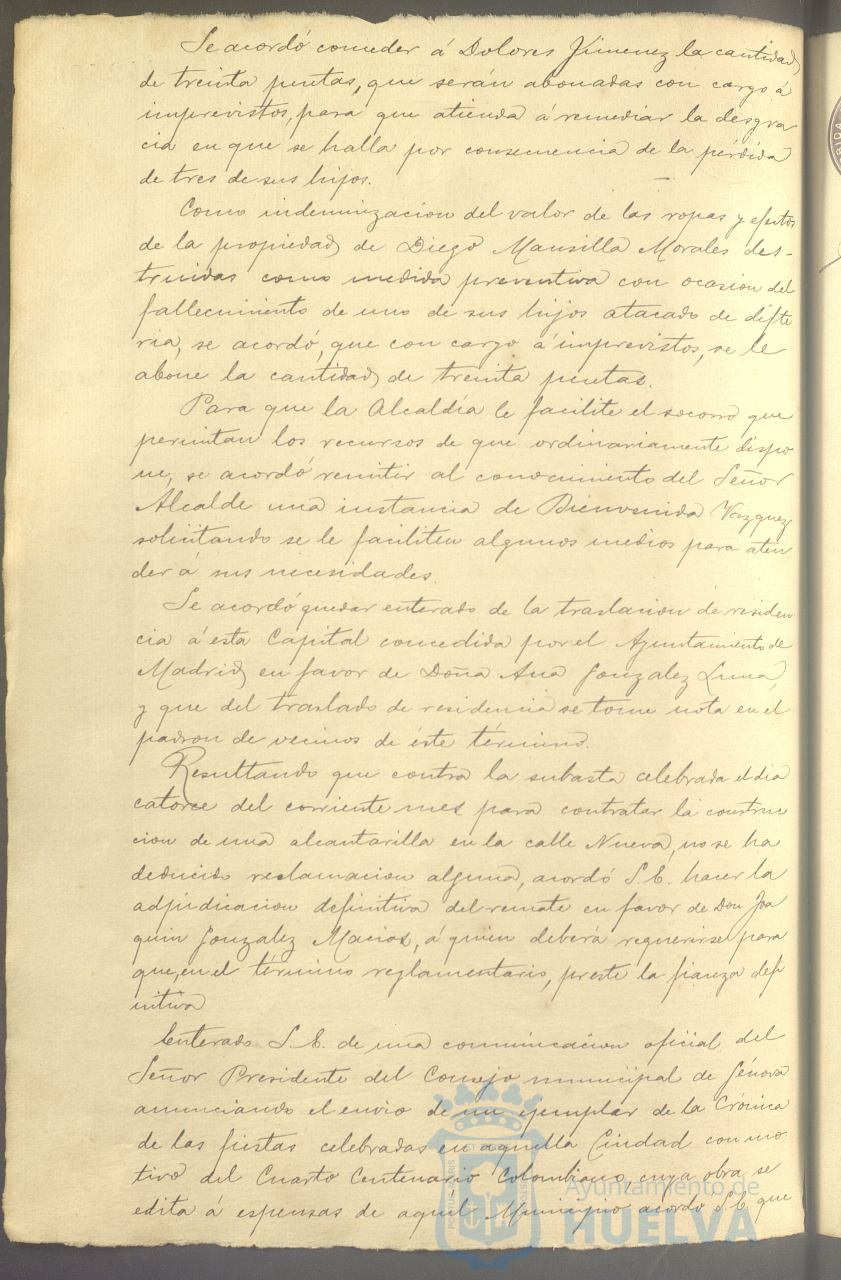 Se acordó conceder á Dolores Jimenez la cantidad
de treinta pesetas, que serán abonadas con cargo á
imprevistos, para que atienda á remediar la desgra
cia en que se halla por consecuencia de la pérdida
de tres de sus hijos.
Como indemnizacion del valor de las ropas y efectos
de la propiedad de Diego Mansilla Morales des-
truidas como medida preventiva con ocasion del
fallecimiento de uno de sus hijos atacado de difte
ria, se acordó, que con cargo á imprevistos, se le
abone la cantidad de treinta pesetas.
Para que la Alcaldía le facilite el socorro que
permitan los recursos de que ordinariamente dispo
ne, se acordó remitir al conocimiento del Señor
Alcalde una instancia de Bienvenida Vazquez
solicitando se le faciliten algunos medios para aten
der á sus necesidades.
Se acordó quedar enterado de la traslacion de residen
cia á esta Capital concedida por el Ayuntamiento de
Madrid en favor de Doña Ana Gonzalez Luna,
y que del traslado de residencia se tome nota en el
padron de vecinos de éste término.
Resultando que contra la subasta celebrada el dia
catorce del corriente mes para contratar la construc
cion de una alcantarilla en la calle Nueva, no se ha
deducido reclamacion alguna, acordó S.E. hacer la
adjudicacion definitiva del remate en favor de Don Joa
quin Gonzalez Macias, á quien deberá requerirse para
que, en el término reglamentario, preste la fianza defi
nitiva
Enterado S.E. de una comunicacion oficial del
Señor Presidente del Consejo municipal de Génova
anunciando el envio de un ejemplar de la Crónica
de las fiestas celebradas en aquella Ciudad con mo
tivo del Cuarto Centenario Colombiano, cuya obra se
edita á espensas de aquel Municipio acordó S.E. que
Ayuntamiento de
HUELVA